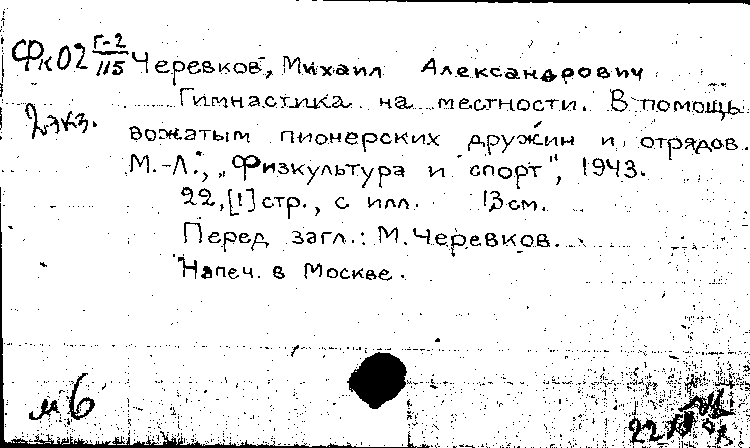 Фк02 Г-2/115 Черевков, Михаил Александрович
Гимнастика на местности. В помощь
2 экз. вожатым пионерских дружин и отрядов.
М.-Л., "Физкультура и спорт", 1943.
22,[1] стр., с илл. 13 см.
Перед загл.: М. Черевков.
Напеч. в Москве.
м6